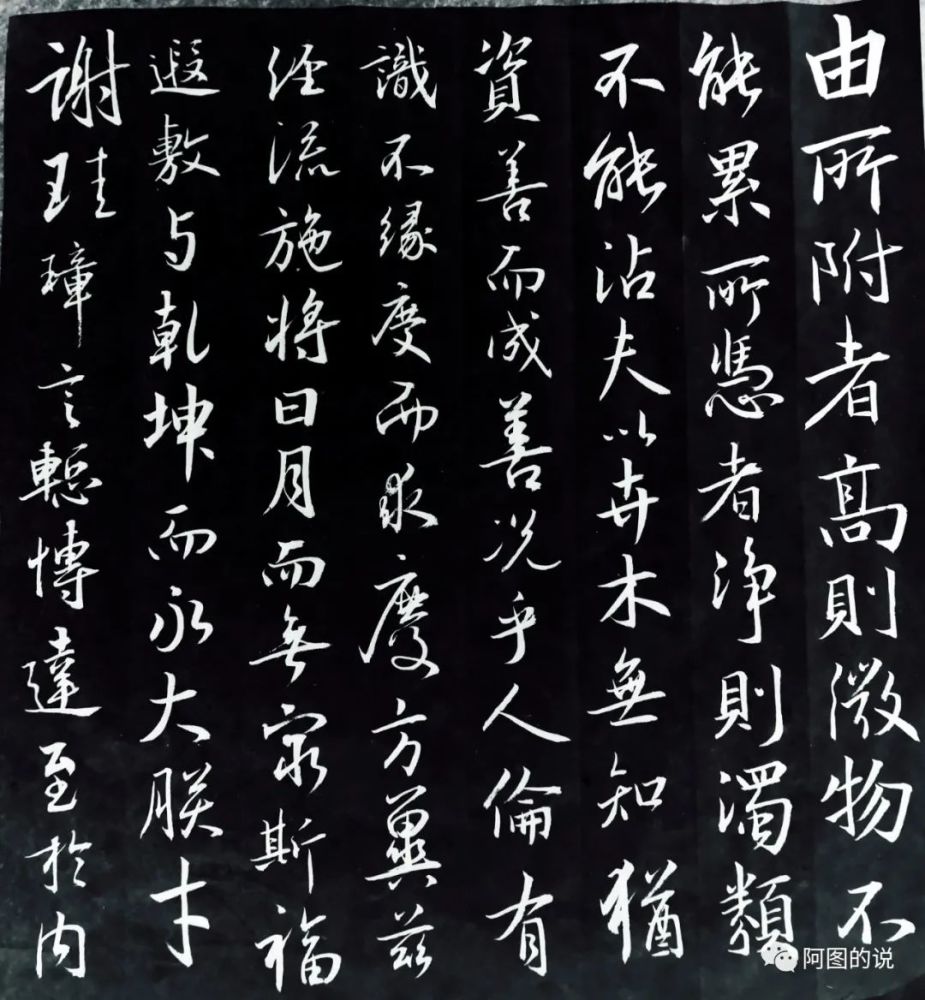 由所附者高則微物不
能累所憑者淨則濁類
不能沾夫以卉木無知猶
資善而成善況乎人倫有
識不緣慶而求慶方冀茲
經流施將日月而無窮斯福
遐敷与乾坤而永大朕才
謝珪璋言慙博達至於内
阿图的说